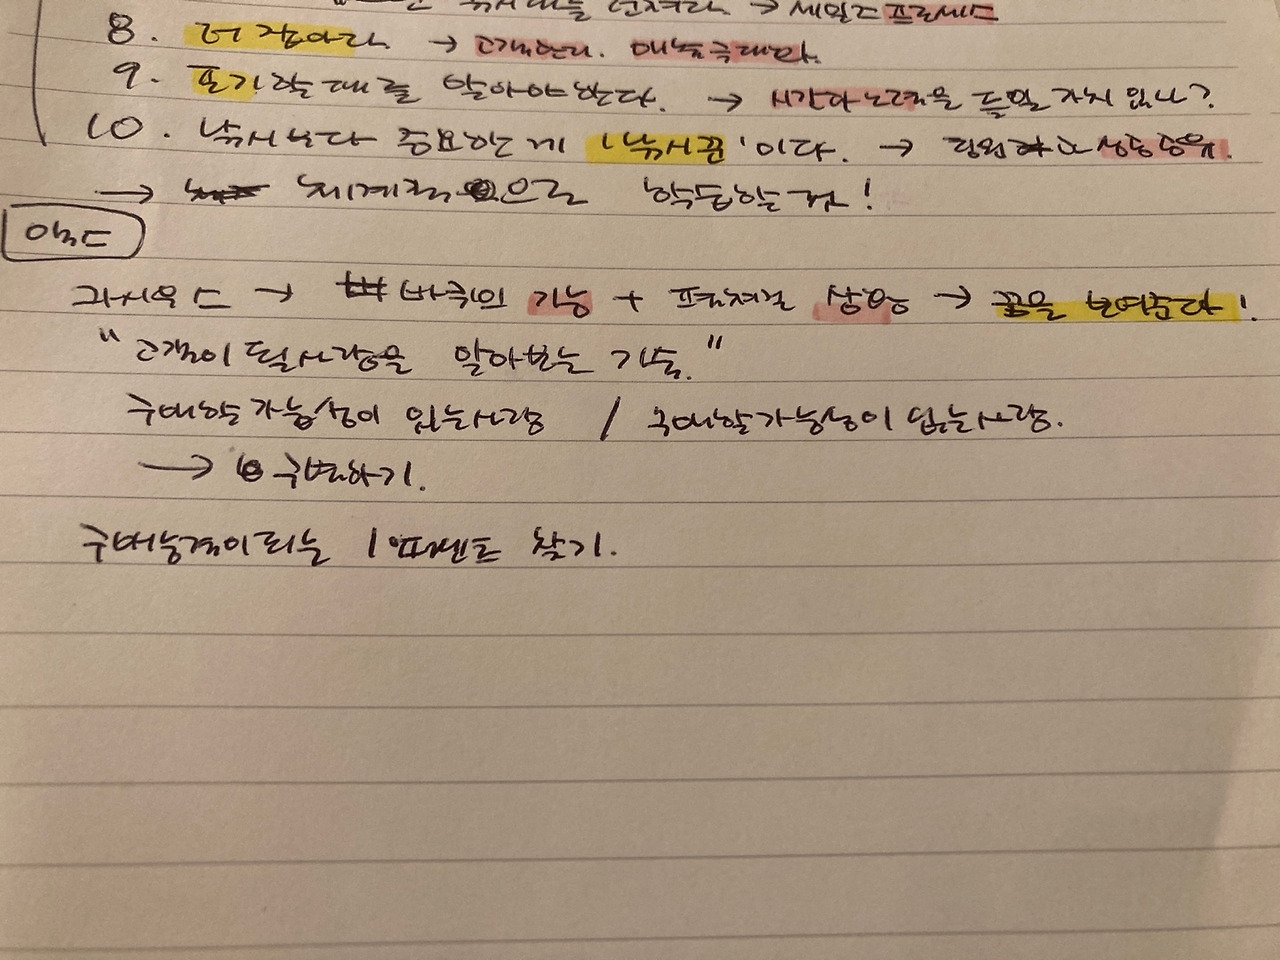 낚시대를 던져라 → 세일즈 프로세스
8. 더 잡아라 → 고객관리. 매출극대화.
9. 포기할 때를 알아야 한다. → 시간과 노력을 들일 가치 있나?
10. 낚시보다 중요한 게 '낚시꾼'이다. →
→ 체계적으로 학습할 것!
→ 바퀴의 기능 + 상용 → 꿈을 보여준다!
"고객이 될 사람을 알아보는 기술."
구매할 가능성이 있는 사람 / 구매할 가능성이 없는 사람.
→ 구별하기.
구매능력이 되는 1퍼센트 찾기.